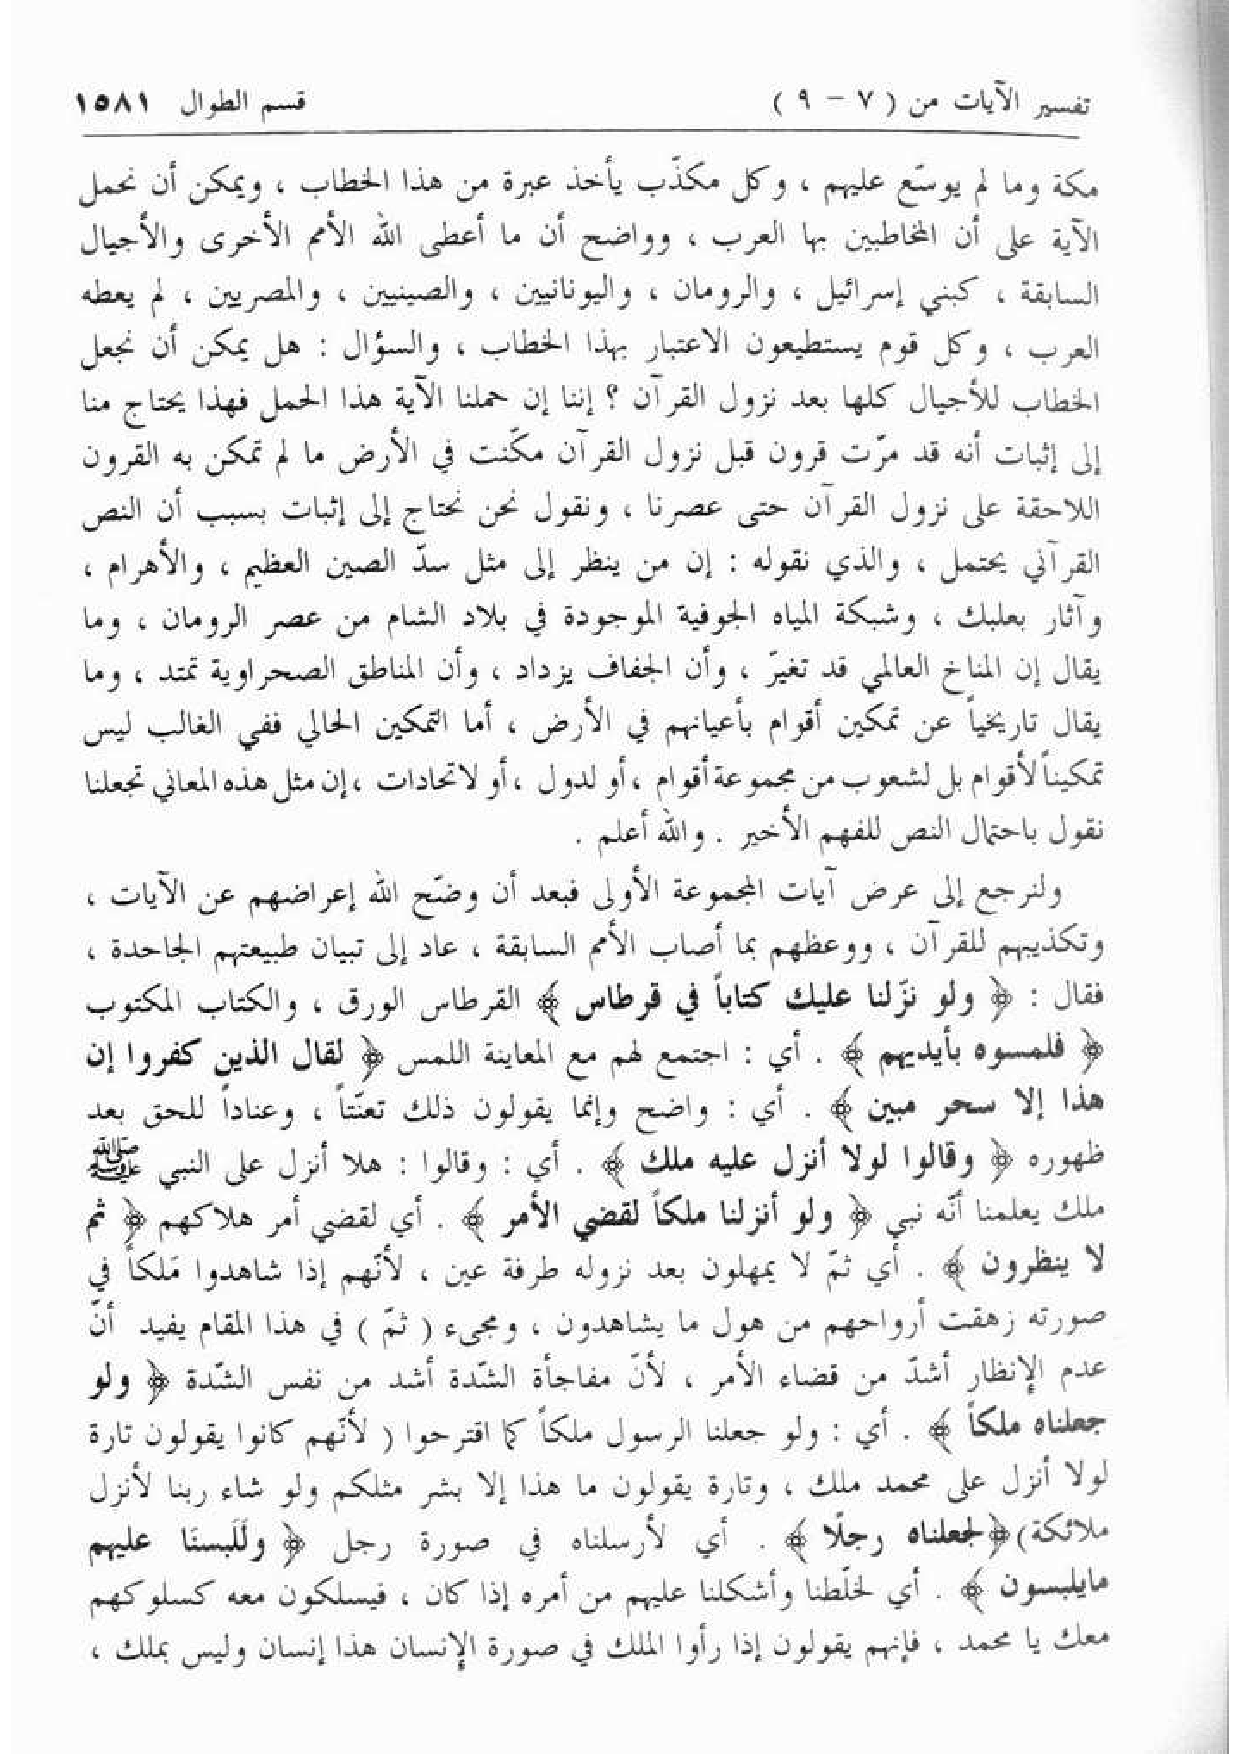 تفسير الآيات من ( ٧ – ٩ )
قسم الطوال ١٥٨١
مكة وما لم يوسّع عليهم ، وكل مكذّب يأخذ عبرة من هذا الخطاب ، ويمكن أن نحمل
الآية على أن المخاطبين بها العرب ، وواضح أن ما أعطى الله الأمم الأخرى والأجيال
السابقة ، كبني إسرائيل ، والرومان ، واليونانيين ، والصينيين ، والمصريين ، لم يعطه
العرب ، وكل قوم يستطيعون الاعتبار بهذا الخطاب ، والسؤال : هل يمكن أن نجعل
الخطاب للأجيال كلها بعد نزول القرآن ؟ إننا إن حملنا الآية هذا الحمل فهذا يحتاج منا
إلى إثبات أنه قد مرّت قرون قبل نزول القرآن مكّنت في الأرض ما لم تمكن به القرون
اللاحقة على نزول القرآن حتى عصرنا ، ونقول نحن نحتاج إلى إثبات بسبب أن النص
القرآني يحتمل ، والذي نقوله : إن من ينظر إلى مثل سدّ الصين العظيم ، والأهرام ،
وآثار بعلبك ، وشبكة المياه الجوفية الموجودة في بلاد الشام من عصر الرومان ، وما
يقال إن المناخ العالمي قد تغيّر ، وأن الجفاف يزداد ، وأن المناطق الصحراوية تمتد ، وما
يقال تاريخياً عن تمكين أقوام بأعيانهم في الأرض ، أما التمكين الحالي ففي الغالب ليس
تمكيناً لأقوام بل لشعوب من مجموعة أقوام ، أو لدول ، أو لاتحادات ، إن مثل هذه المعاني تجعلنا
نقول باحتمال النص للفهم الأخير . والله أعلم .
ولنرجع إلى عرض آيات المجموعة الأولى فبعد أن وضّح الله إعراضهم عن الآيات ،
وتكذيبهم للقرآن ، ووعظهم بما أصاب الأمم السابقة ، عاد إلى تبيان طبيعتهم الجاحدة ،
فقال : ﴿ ولو نزّلنا عليك كتاباً في قرطاس ﴾ القرطاس الورق ، والكتاب المكتوب
﴿ فلمسوه بأيديهم ﴾ . أي : اجتمع لهم مع المعاينة اللمس ﴿ لقال الذين كفروا إن
هذا إلا سحر مبين ﴾ . أي : واضح وإنما يقولون ذلك تعنّتاً ، وعناداً للحق بعد
ظهوره ﴿ وقالوا لولا أنزل عليه ملك ﴾ . أي : وقالوا : هلا أنزل على النبي ﷺ
ملك يعلمنا أنّه نبي ﴿ ولو أنزلنا ملكاً لقضي الأمر ﴾ . أي لقضي أمر هلاكهم ﴿ ثم
لا ينظرون ﴾ . أي ثمّ لا يمهلون بعد نزوله طرفة عين ، لأنّهم إذا شاهدوا مَلكاً في
صورته زهقت أرواحهم من هول ما يشاهدون ، ومجيء ( ثمّ ) في هذا المقام يفيد أنّ
عدم الإنظار أشدّ من قضاء الأمر ، لأنّ مفاجأة الشّدة أشد من نفس الشّدة ﴿ ولو
جعلناه ملكاً ﴾ . أي : ولو جعلنا الرسول ملكاً كما اقترحوا ( لأنّهم كانوا يقولون تارة
لولا أنزل على محمد ملك ، وتارة يقولون ما هذا إلا بشر مثلكم ولو شاء ربنا لأنزل
ملائكة) ﴿لجعلناه رجلًا ﴾ . أي لأرسلناه في صورة رجل ﴿ ولَلَبسنَا عليهم
مايلبسون ﴾ . أي لخلّطنا وأشكلنا عليهم من أمره إذا كان ، فيسلكون معه كسلوكهم
معك يا محمد ، فإنهم يقولون إذا رأوا الملك في صورة الإنسان هذا إنسان وليس بملك ،